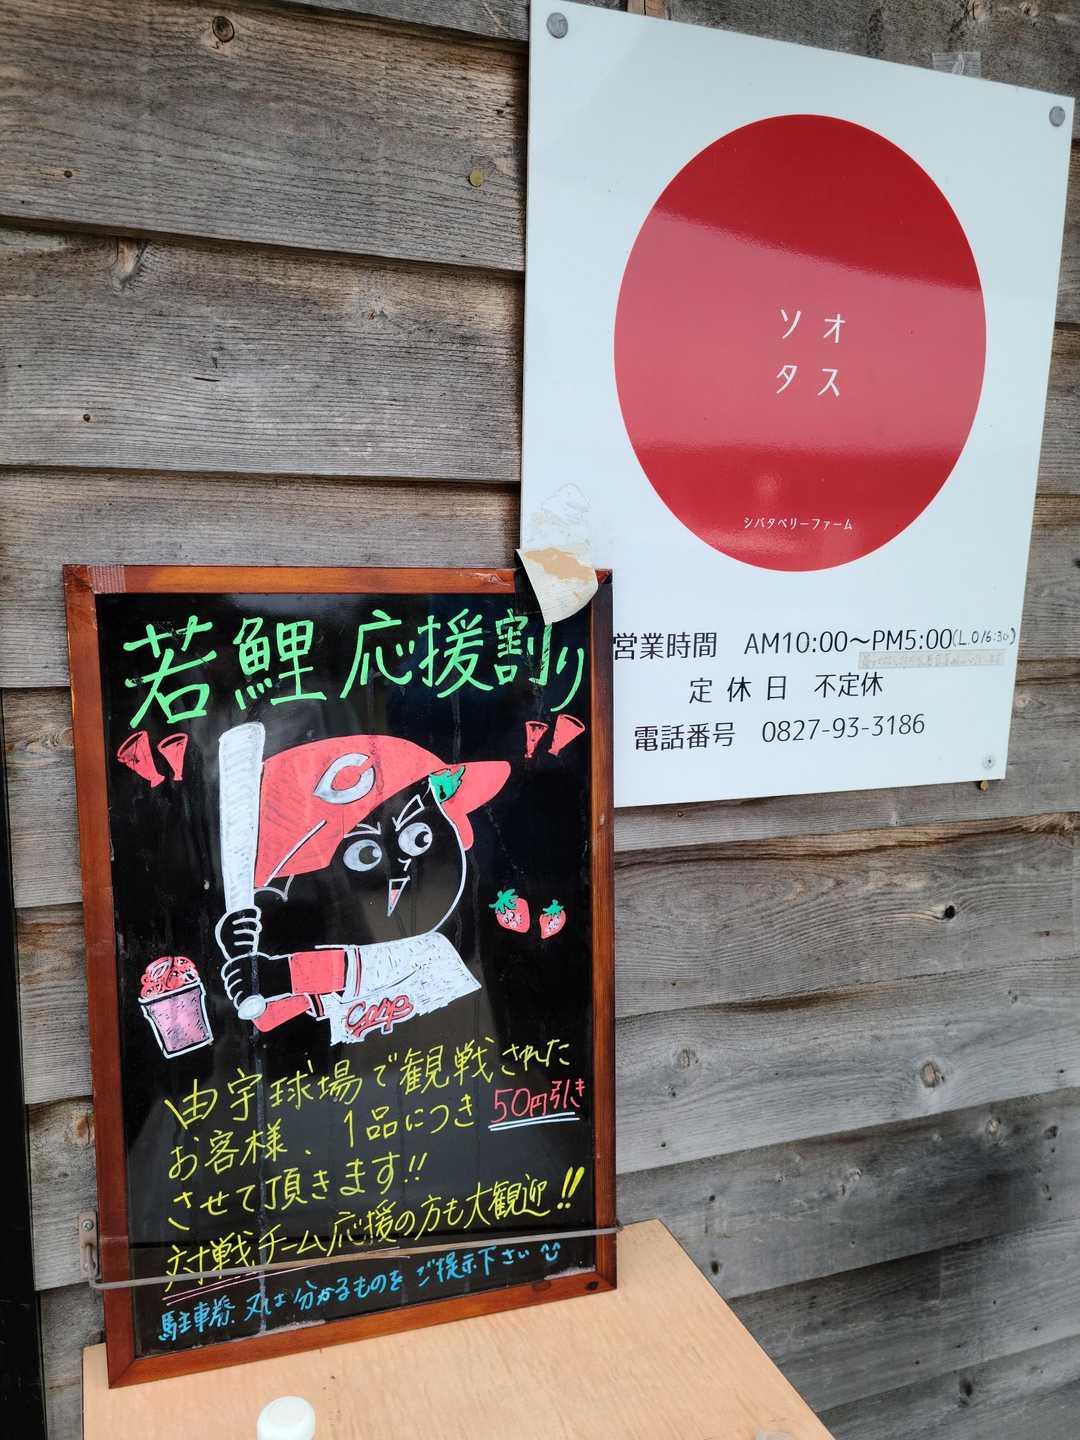 ソオ
タス
シバタベリーファーム
営業時間 AM10:00〜PM5:00(L.O16:30)
定休日 不定休
電話番号 0827-93-3186
若鯉応援割り
C
Carp
由宇球場で観戦された
お客様、1品につき 50円引き
させて頂きます!!
対戦チーム応援の方も大歓迎!!
駐車券、又は分かるものをご提示下さい